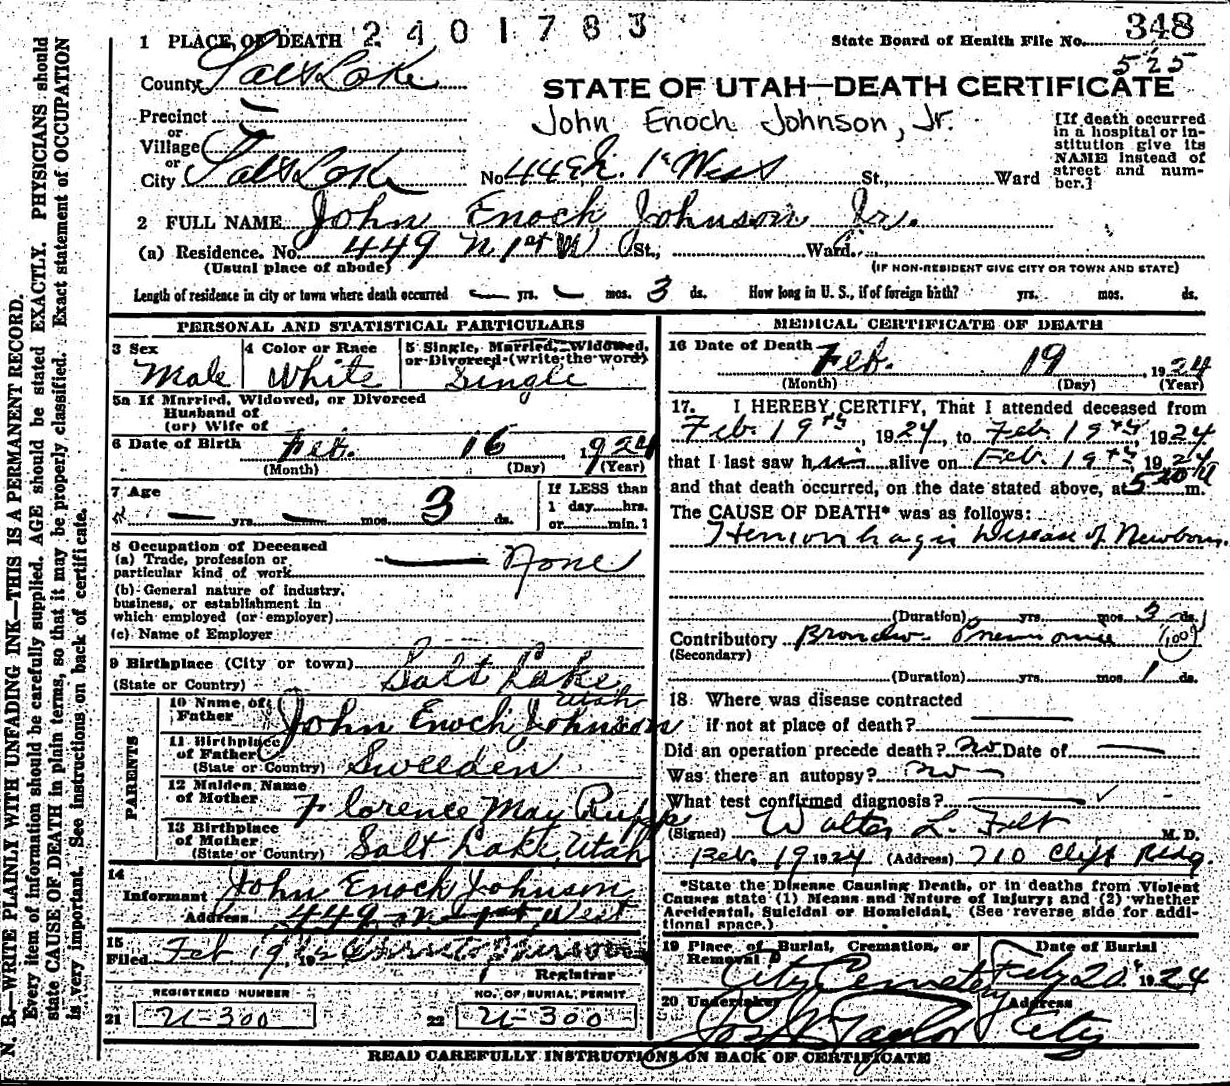 2401783
348
525
1 PLACE OF DEATH
State Board of Health File No.
County Salt Lake
STATE OF UTAH—DEATH CERTIFICATE
John Enoch Johnson, Jr.
Precinct
or
Village
or
City Salt Lake
No. 449 N. 1st West St., Ward
[If death occurred
in a hospital or in-
stitution give its
NAME instead of
street and num-
ber.]
2 FULL NAME John Enoch Johnson Jr.
(a) Residence. No. 449 N 1st W St., Ward.
(Usual place of abode)
(IF NON-RESIDENT GIVE CITY OR TOWN AND STATE)
Length of residence in city or town where death occurred — yrs. — mos. 3 ds. How long in U. S., if of foreign birth? yrs. mos. ds.
PERSONAL AND STATISTICAL PARTICULARS
3 Sex
Male
4 Color or Race
White
5 Single, Married, Widowed,
or Divorced (write the word)
Single
5a If Married, Widowed, or Divorced
Husband of
(or) Wife of
6 Date of Birth Feb. 16 1924
(Month) (Day) (Year)
7 Age
— yrs. — mos. 3 ds.
If LESS than
1 day hrs.
or min.?
8 Occupation of Deceased
(a) Trade, profession or
particular kind of work — None
(b) General nature of industry,
business, or establishment in
which employed (or employer)
(c) Name of Employer
9 Birthplace (City or town) Salt Lake
(State or Country) Utah
PARENTS
10 Name of
Father John Enoch Johnson
11 Birthplace
of Father
(State or Country) Sweeden
12 Maiden Name
of Mother Florence May Rupp
13 Birthplace
of Mother
(State or Country) Salt Lake, Utah
14
Informant John Enock Johnson
Address 449 N 1st West
15
Filed Feb 19 19
Registrar
REGISTERED NUMBER
21 U-300
NO. OF BURIAL PERMIT
22 U-300
MEDICAL CERTIFICATE OF DEATH
16 Date of Death Feb. 19 1924
(Month) (Day) (Year)
17. I HEREBY CERTIFY, That I attended deceased from
Feb. 19th, 1924, to Feb. 19th, 1924
that I last saw him alive on Feb. 19th, 1924
and that death occurred, on the date stated above, at 520 A m.
The CAUSE OF DEATH* was as follows:
Hemorrhagic Disease of Newborn.
(Duration) yrs. mos. 3 ds.
Contributory Broncho Pneumonia (100)
(Secondary)
(Duration) yrs. mos. 1 ds.
18 Where was disease contracted
if not at place of death? —
Did an operation precede death? no Date of —
Was there an autopsy? no —
What test confirmed diagnosis? — ✓
(Signed) Walter L. Felt M. D.
Feb. 19 1924 (Address) 710 Clift Bldg.
*State the Disease Causing Death, or in deaths from Violent
Causes state (1) Means and Nature of Injury; and (2) whether
Accidental, Suicidal or Homicidal. (See reverse side for addi-
tional space.)
19 Place of Burial, Cremation, or
Removal City Cemetery
Date of Burial
Feby 20 1924
20 Undertaker Jos Wm Taylor
Address City
READ CAREFULLY INSTRUCTIONS ON BACK OF CERTIFICATE
N. B.—WRITE PLAINLY WITH UNFADING INK—THIS IS A PERMANENT RECORD.
Every item of information should be carefully supplied. AGE should be stated EXACTLY. PHYSICIANS should
state CAUSE OF DEATH in plain terms, so that it may be properly classified. Exact statement of OCCUPATION
is very important. See instructions on back of certificate.